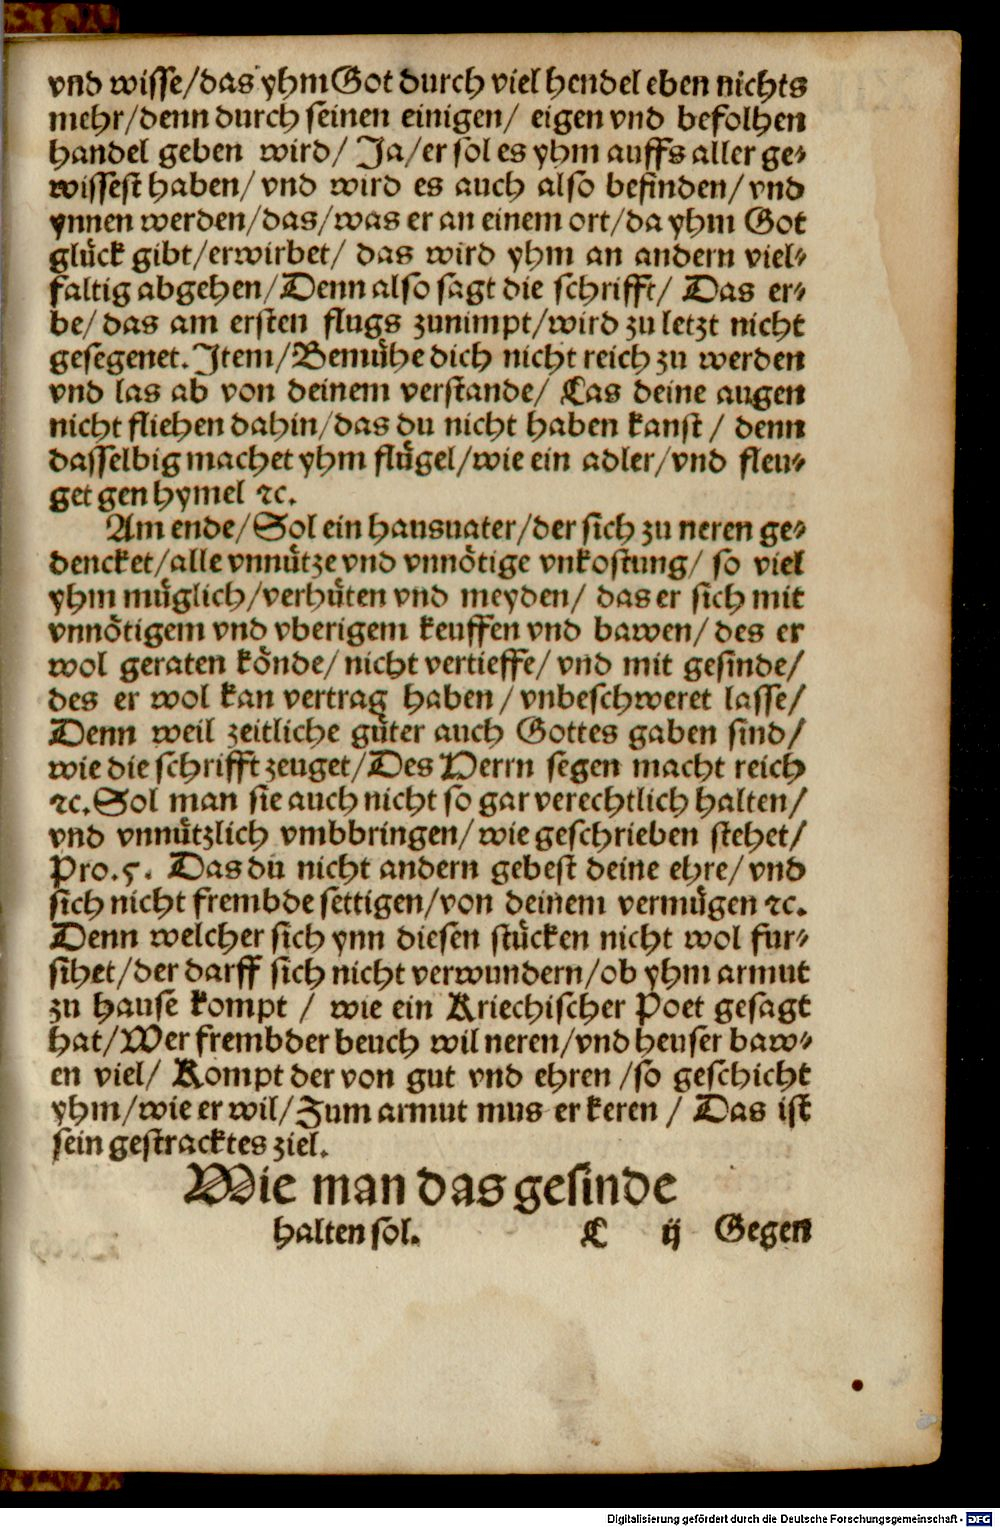 vnd wisse/das yhm Got durch viel hendel eben nichts
mehr/denn durch seinen einigen/ eigen vnd befolhen
handel geben wird/ Ja/er sol es yhm auffs aller ge-
wissest haben/ vnd wird es auch also befinden/ vnd
ynnen werden/das/was er an einem ort/da yhm Got
glück gibt/erwirbet/ das wird yhm an andern viel-
faltig abgehen/Denn also sagt die schrifft/ Das er-
be/ das am ersten flugs zunimpt/wird zu letzt nicht
gesegenet. Item/Bemühe dich nicht reich zu werden
vnd las ab von deinem verstande/ Las deine augen
nicht fliehen dahin/das du nicht haben kanst / denn
dasselbig machet yhm flügel/wie ein adler/vnd fleu-
get gen hymel ꝛc.
Am ende/Sol ein hausuater/der sich zu neren ge-
dencket/alle vnnütze vnd vnnötige vnkostung/ so viel
yhm müglich/verhüten vnd meyden/ das er sich mit
vnnötigem vnd vberigem keuffen vnd bawen/ des er
wol geraten könde/ nicht vertieffe/ vnd mit gesinde/
des er wol kan vertrag haben / vnbeschweret lasse/
Denn weil zeitliche güter auch Gottes gaben sind/
wie die schrifft zeuget/Des Herrn segen macht reich
ꝛc. Sol man sie auch nicht so gar verechtlich halten/
vnd vnnützlich vmbbringen/ wie geschrieben stehet/
Pro.5. Das du nicht andern gebest deine ehre/ vnd
sich nicht frembde settigen/von deinem vermügen ꝛc.
Denn welcher sich ynn diesen stücken nicht wol fur-
sihet/der darff sich nicht verwundern/ob yhm armut
zu hause kompt / wie ein Kriechischer Poet gesagt
hat/Wer frembder beuch wil neren/vnd heuser baw-
en viel/ Kompt der von gut vnd ehren /so geschicht
yhm/wie er wil/Zum armut mus er keren / Das ist
sein gestracktes ziel.
Wie man das gesinde
halten sol. C ij Gegen
Digitalisierung gefördert durch die Deutsche Forschungsgemeinschaft - DFG